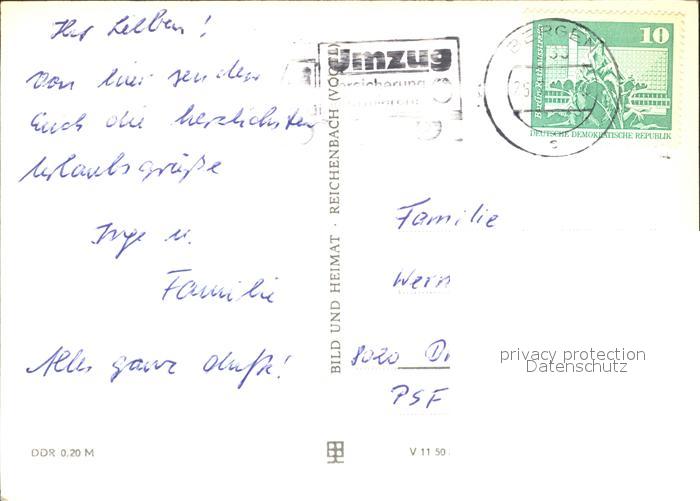 Ihr Lieben!
Von hier senden
Euch die herzlichsten
Urlaubsgrüße
Inge u.
Familie
Alles ganz dufte!
DDR 0,20 M
BILD UND HEIMAT · REICHENBACH (VOGTL
Umzug
BERGEN
10
Berlin-Rathausstraße
DEUTSCHE DEMOKRATISCHE REPUBLIK
Familie
Wern
8020 Dr
PSF
V 11 50
privacy protection
Datenschutz